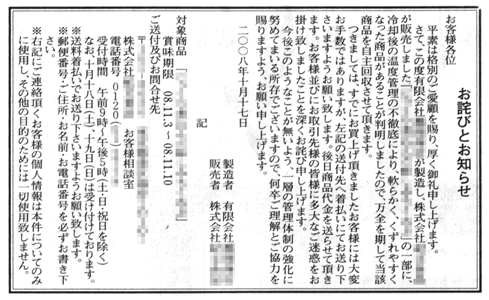 お詫びとお知らせ
お客様各位
平素は格別のご愛顧を賜り、厚く御礼申し上げます。
さて、この度有限会社が製造し、株式会社
が販売しました「」の一部に、
冷却後の温度管理の不徹底により、軟らかく、くずれやすく
なった商品があることが判明しましたので、万全を期して当該
商品を自主回収させて頂きます。
つきましては、すでにお買上げ頂きましたお客様には大変
お手数ではありますが、左記の送付先へ着払いにてお送り下
さいますようお願い致します。後日商品代金を送らせて頂き
ます。お客様並びにお取引先様の皆様に多大なご迷惑をお
掛け致しましたことを深くお詫び申し上げます。
今後このようなことが無いよう、一層の管理体制の強化に
努めてまいる所存でございますので、何卒ご理解とご協力を
賜りますよう、お願い申し上げます。
二〇〇八年十月十七日
製造者 有限会社
販売者 株式会社
記
対象商品
賞味期限 08.11.3 〜 08.11.10
ご送付及びお問合せ先
〒
株式会社 お客様相談室
電話番号 0120
受付時間 午前9時〜午後5時(土・日・祝日を除く)
なお、十月十八日(土)、十九日(日)は受付けております。
※送料着払いでお送り下さいますようお願い致します。
※郵便番号・ご住所・お名前・お電話番号を必ずお書き下さい。
※右記にご連絡頂くお客様の個人情報は本件についてのみ
に使用し、その他の目的のためには一切使用致しません。